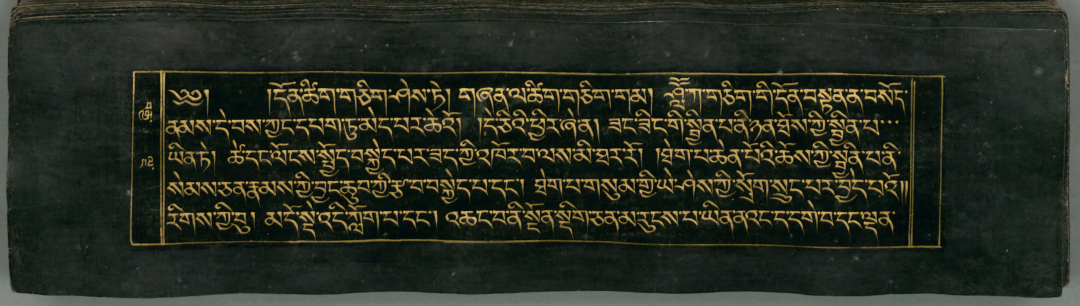 ༄༅། །དོན་ཚིག་གཅིག་ཤེས་ཏེ། གཞན་ལ་ཚིག་གཅིག་གམ། ཤློ་ཀ་གཅིག་གི་དོན་བསྟན་ན་བསོད་
ནམས་དེ་བས་ཀྱང་དཔག་ཏུ་མེད་པར་ཆེའོ། །དེ་ཅིའི་ཕྱིར་ཞེ་ན། ཟང་ཟིང་གི་སྦྱིན་པ་ནི་ཉན་ཐོས་ཀྱི་སྦྱིན་པ་
ཡིན་ཏེ། ཚེ་དང་ལོངས་སྤྱོད་བསྐྱེད་པར་ཟད་ཀྱི་འཁོར་བ་ལས་མི་ཐར་རོ། །ཐེག་པ་ཆེན་པོའི་ཆོས་ཀྱི་སྦྱིན་པ་ནི་
སེམས་ཅན་རྣམས་ཀྱི་བྱང་ཆུབ་ཀྱི་རྩ་བ་བསྐྱེད་པ་དང་། ཐེག་པ་གསུམ་གྱི་ཡེ་ཤེས་ཀྱི་སྲོག་སྲུང་པར་བྱེད་པའོ།།
རིགས་ཀྱི་བུ། མདོ་སྡེ་འདི་ཀློག་པ་དང་། འཆང་བ་ནི་སྔོན་སྡིག་ཅན་མ་རུངས་པ་ཡིན་ནའང་དད་གེ་བ་དང་ལྡན་